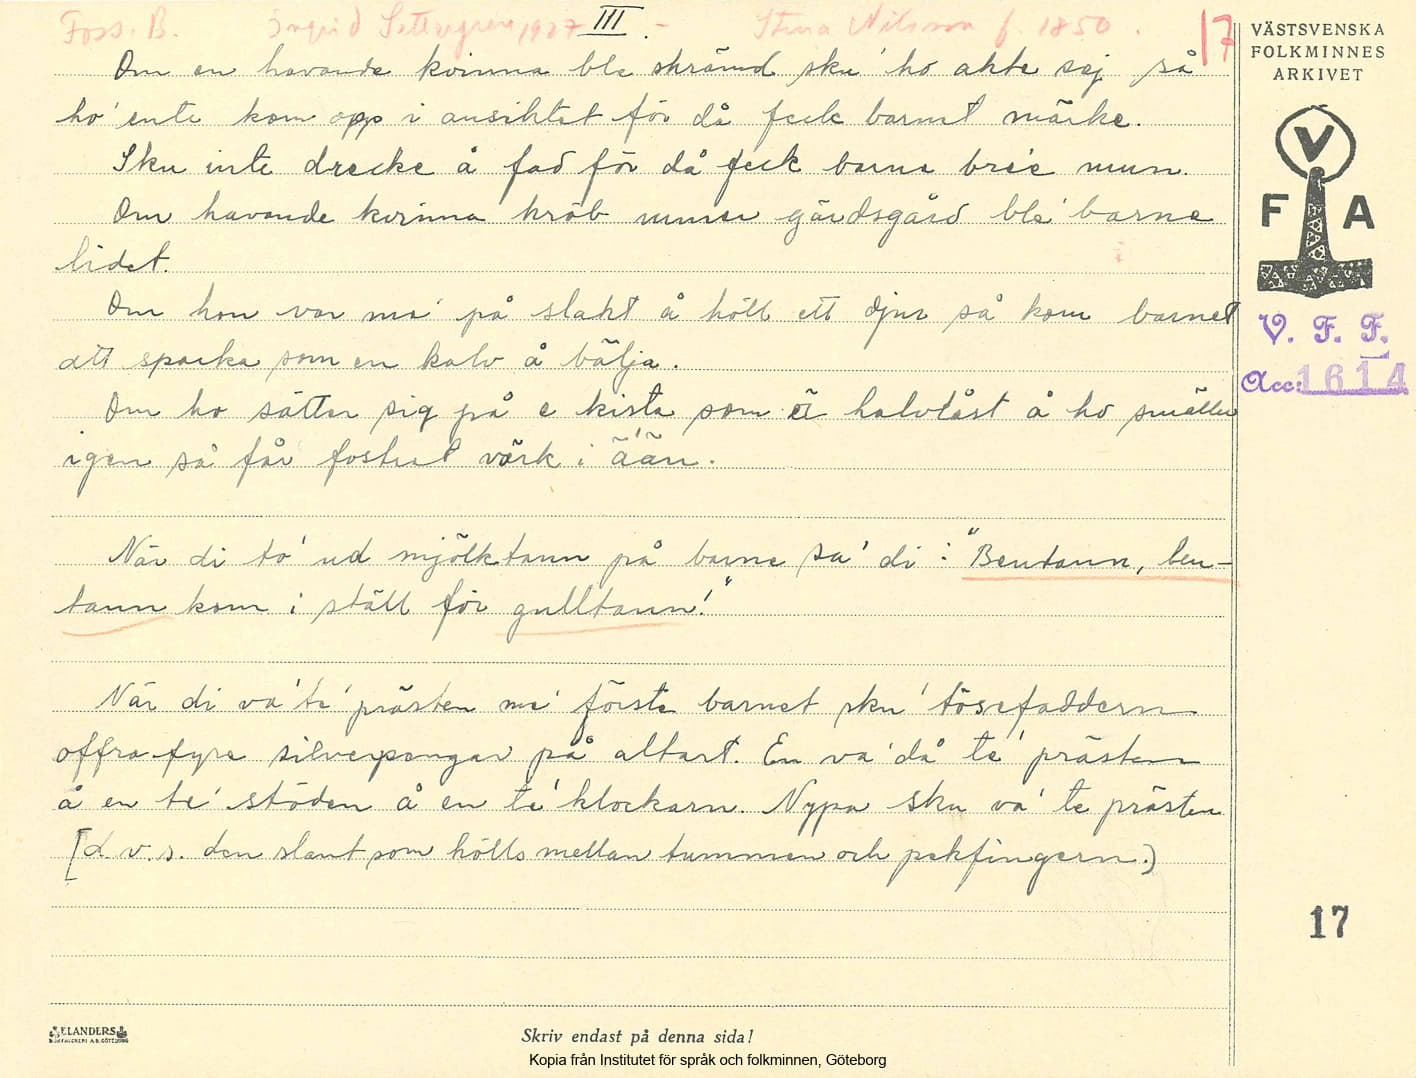 Foss. B. Ingrid 1927 III. - Stina Nilsson f. 1850. 17
Om en havande kvinna ble skrämd sku' ho akte sej så
ho' ente kom opp i ansiktet för då feck barnet märke.
Sku inte drecke å fad för då feck barne bre'e mun.
Om havande kvinna kröb unner gärdsgård ble' barne
lidet.
Om hon var me' på slakt å höll ett djur så kom barnet
att sparka som en kalv å bälja.
Om ho sätter sig på e kista som ä halvlåst å ho smäller
igen så får fostret värk i
När di to' ud mjölktann på barne sa' di: "Bentann, ben-
tann kom i ställ för gulltann!"
När di va' te' prästen me' förste barnet sku' tösefaddern
offra fyra silverpengar på altart. En va' då te' prästen
å en te' stöden å en te' klockarn. Nypa sku va' te prästen
[d.v.s. den slant som hölls mellan tummen och pekfingern.)
VÄSTSVENSKA
FOLKMINNES
ARKIVET
V
F A
V. F. F.
Acc: 1614
17
ELANDERS
Skriv endast på denna sida!
Kopia från Institutet för språk och folkminnen, Göteborg